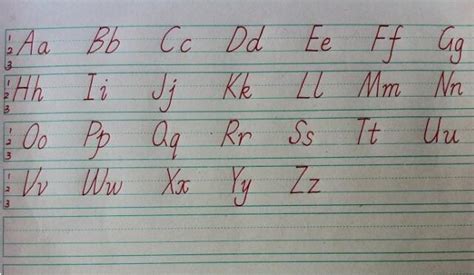 1 2 3 Aa Bb Cc Dd Ee Ff Gg
1 2 3 Hh Ii Jj Kk Ll Mm Nn
1 2 3 Oo Pp Qq Rr Ss Tt Uu
1 2 3 Vv Ww Xx Yy Zz